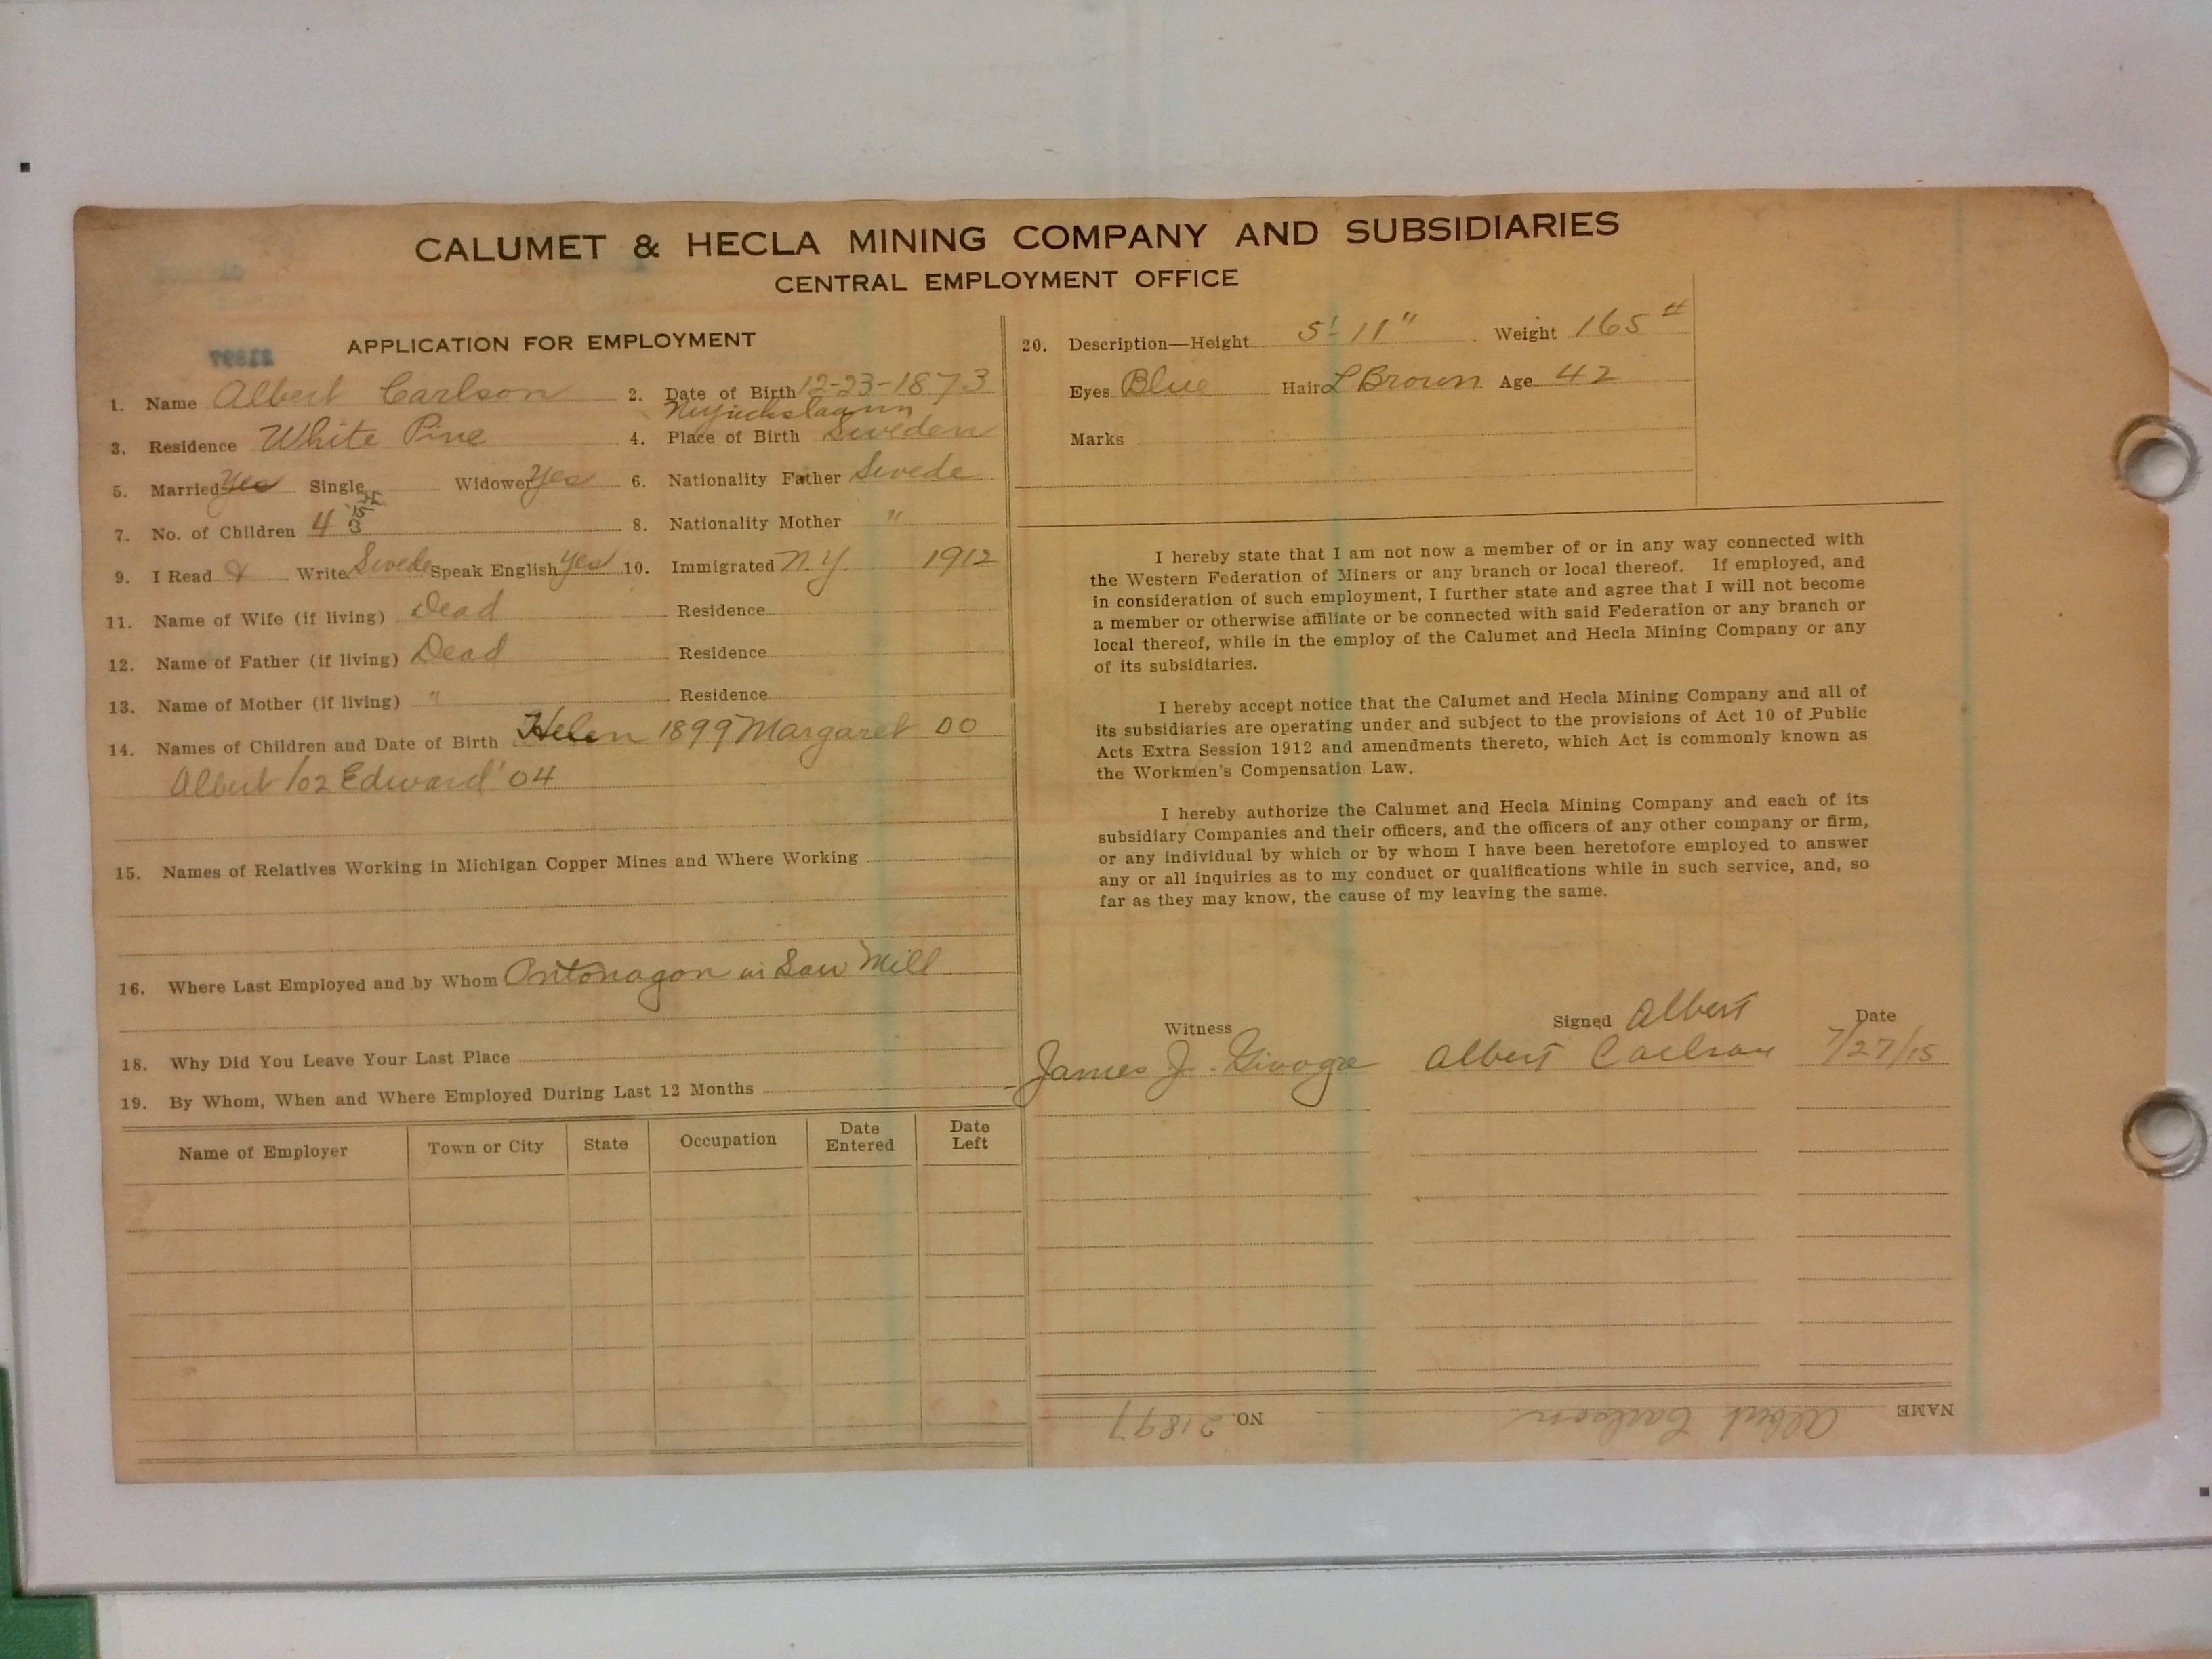 CALUMET & HECLA MINING COMPANY AND SUBSIDIARIES
CENTRAL EMPLOYMENT OFFICE
APPLICATION FOR EMPLOYMENT
21897
1. Name Albert Carlson 2. Date of Birth 12-23-1873
3. Residence White Pine 4. Place of Birth Sweden
5. Married Yes Single Widower Yes 6. Nationality Father Swede
7. No. of Children 4 8. Nationality Mother "
9. I Read & Write Swede Speak English Yes 10. Immigrated N.Y. 1912
11. Name of Wife (if living) Dead Residence
12. Name of Father (if living) Dead Residence
13. Name of Mother (if living) " Residence
14. Names of Children and Date of Birth Helen 1899 Margaret 00
Albert /02 Edward '04
15. Names of Relatives Working in Michigan Copper Mines and Where Working
16. Where Last Employed and by Whom Ontonagon in Saw Mill
18. Why Did You Leave Your Last Place
19. By Whom, When and Where Employed During Last 12 Months
Name of Employer Town or City State Occupation Date Entered Date Left
20. Description—Height 5'-11" Weight 165 #
Eyes Blue Hair L Brown Age 42
Marks
I hereby state that I am not now a member of or in any way connected with
the Western Federation of Miners or any branch or local thereof. If employed, and
in consideration of such employment, I further state and agree that I will not become
a member or otherwise affiliate or be connected with said Federation or any branch or
local thereof, while in the employ of the Calumet and Hecla Mining Company or any
of its subsidiaries.
I hereby accept notice that the Calumet and Hecla Mining Company and all of
its subsidiaries are operating under and subject to the provisions of Act 10 of Public
Acts Extra Session 1912 and amendments thereto, which Act is commonly known as
the Workmen's Compensation Law.
I hereby authorize the Calumet and Hecla Mining Company and each of its
subsidiary Companies and their officers, and the officers of any other company or firm,
or any individual by which or by whom I have been heretofore employed to answer
any or all inquiries as to my conduct or qualifications while in such service, and, so
far as they may know, the cause of my leaving the same.
Witness Signed Albert Date
James J. Albert Carlson 7/27/15
NAME Albert Carlson NO. 21897